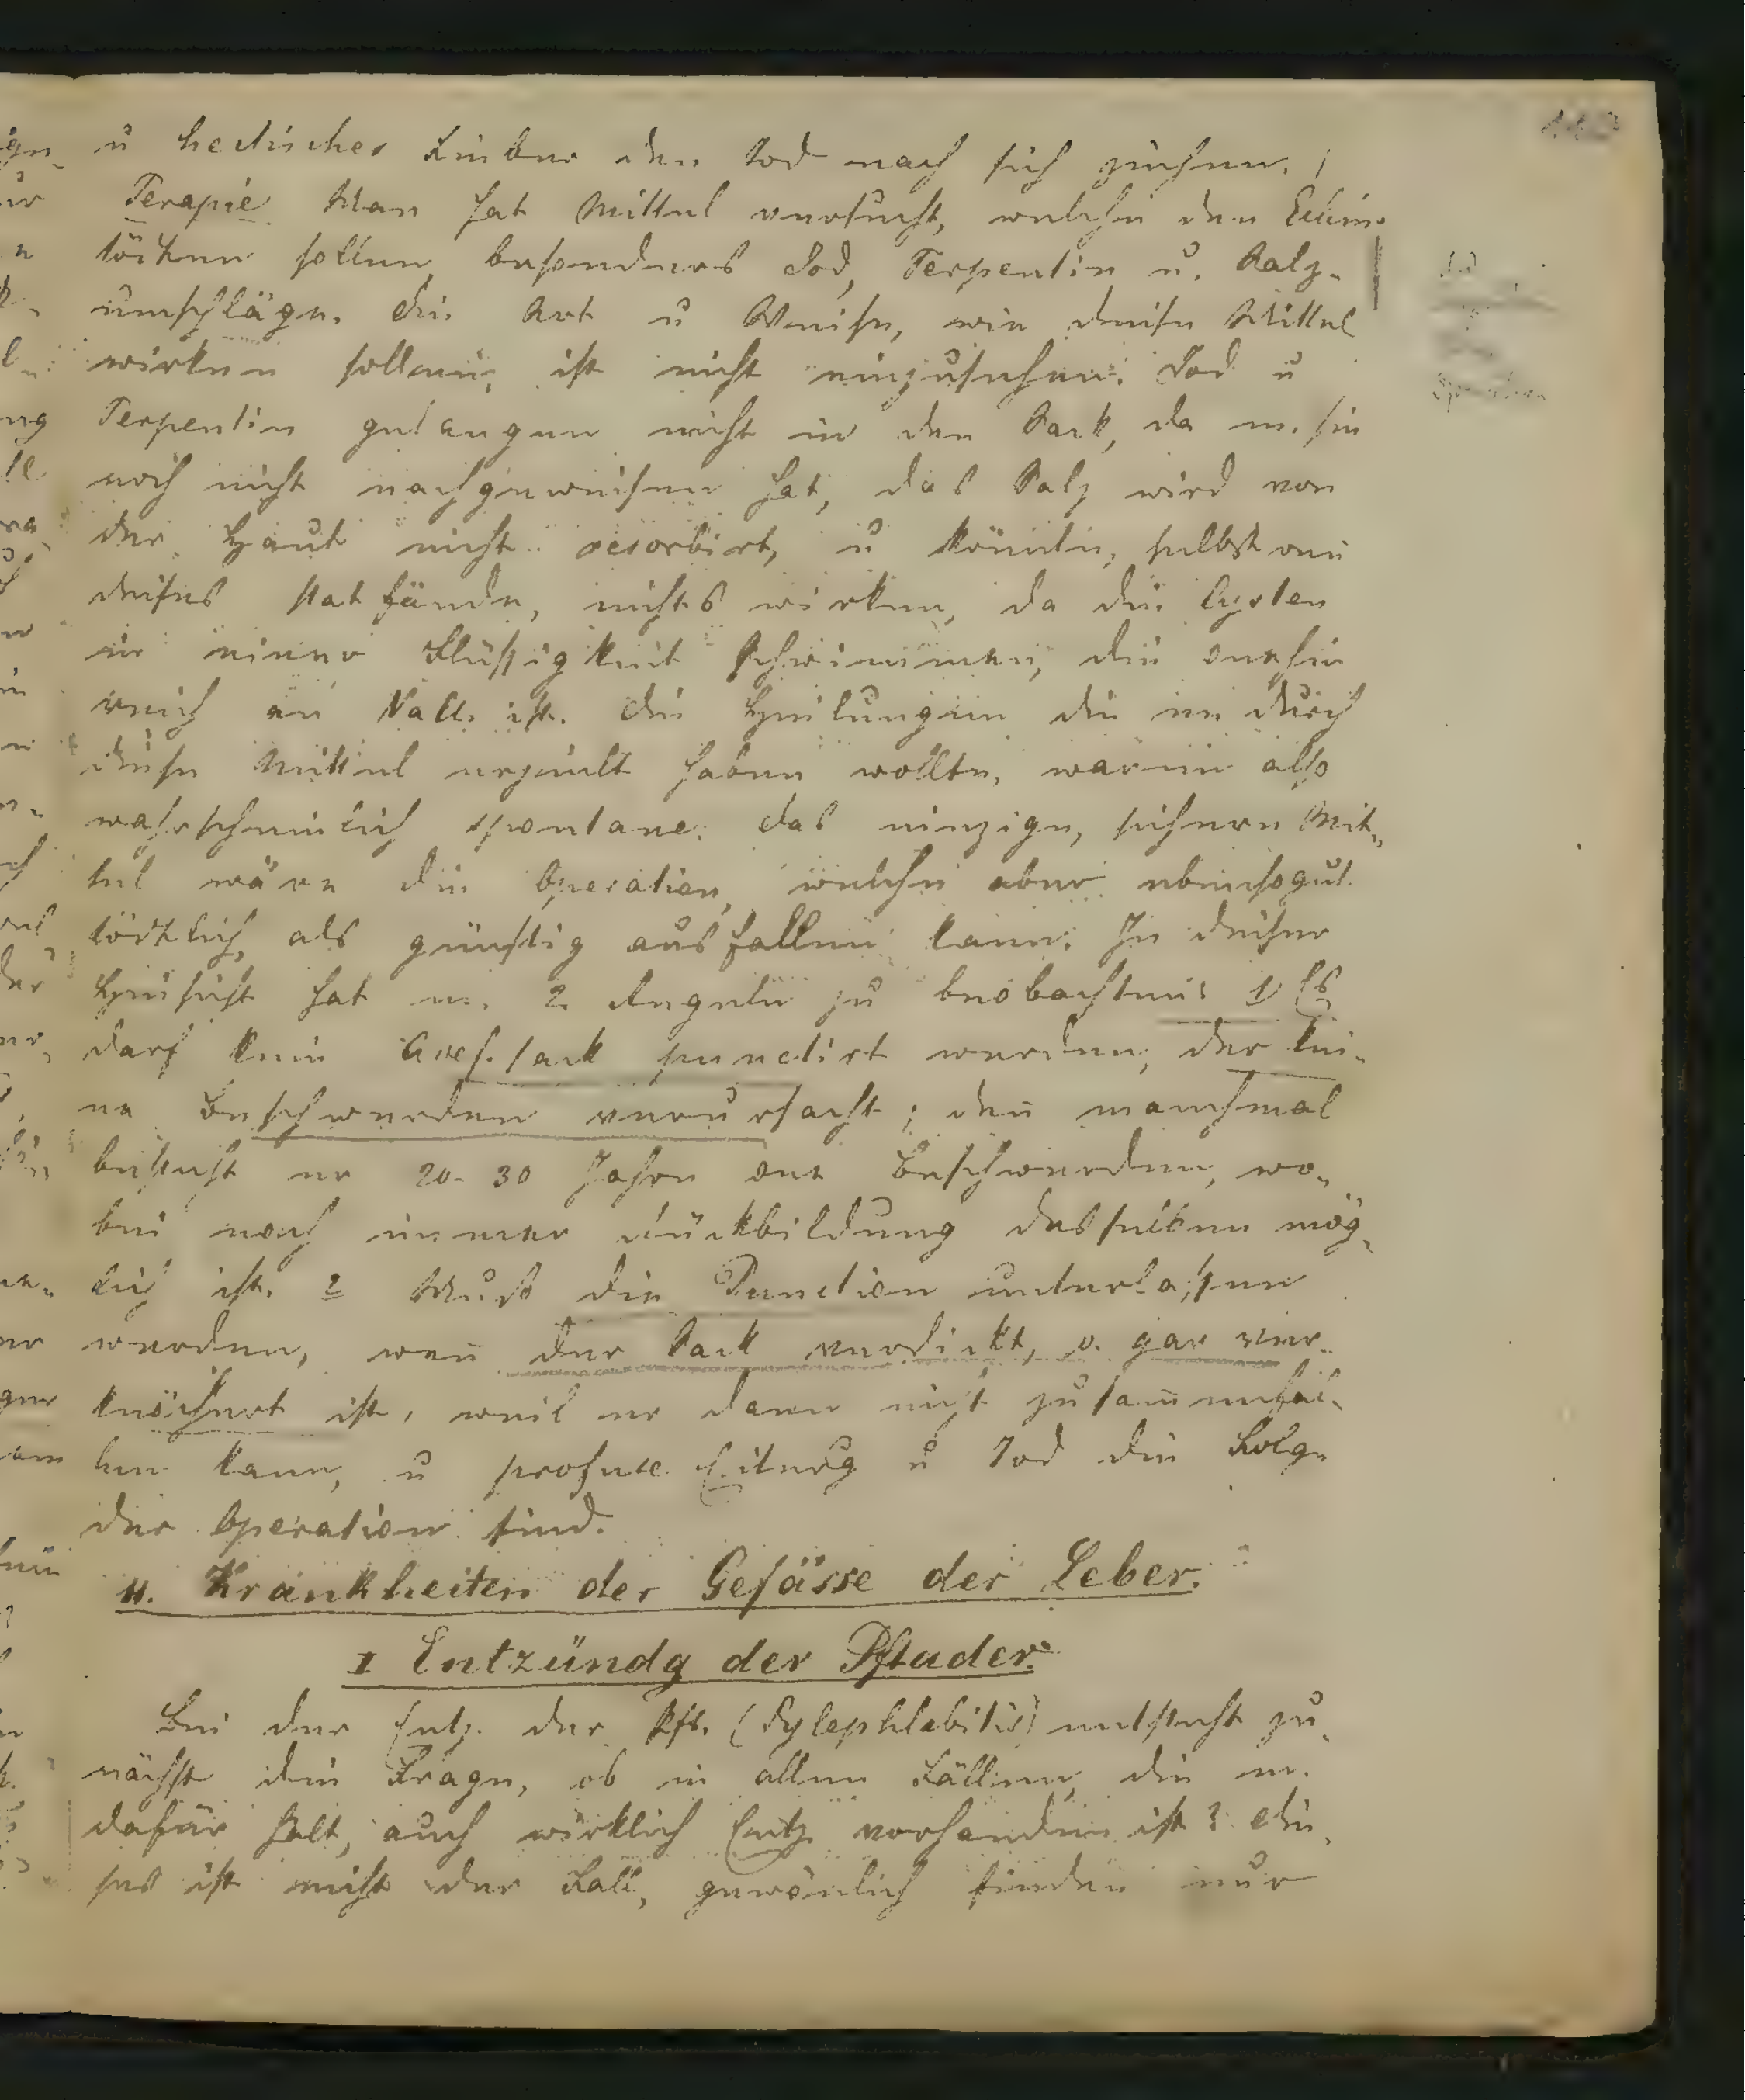 u hectisches Fieber den Tod nach sich ziehen.
Terapie. Man hat Mittel versucht, welche den Echin.
tödten sollen, besonders Jod, Terpentin u. Salz-
umschläge. Die Art u Weise, wie diese Mittel
wirken sollen, ist nicht einzusehen. Jod u
Terpentin gelangen nicht in den Sack, da m. sie
noch nicht nachgewiesen hat, das Salz wird von
der Haut nicht resorbirt, u könnte, selbst wen̅
dieses statfände, nichts wirken, da die Cysten
in einer Flüssigkeit schwimmen, die onehin
reich an NaCl. ist. Die Heilungen die m. durch
diese Mittel erzielt haben wollte, waren also
wahrscheinlich spontane. Das einzige, sichere Mit-
tel wäre die Operation, welche aber ebensogut
tödtlich, als günstig ausfallen kann. In dieser
Hinsicht hat m. 2 Regeln zu beobachten: 1) Es
darf kein Sack punctirt werden, der kei-
ne Beschwerden verursacht; den̅ manchmal
besteht er 20-30 Jahre one Beschwerden, wo-
bei noch immer Rückbildung desselben mög-
lich ist. 2 Muß die Punction unterlassen
werden, wen̅ der Sack verdickt, o. gar ver-
knöchert ist, weil er dann nicht zusam̅enfal-
len kann, u profuse Eiterug u Tod die Folge
der Operation sind.
II. Krankheiten der Gefässe der Leber.
I Entzündg der Pftader.
Bei der Entz. der Pft. (Pylephlebitis) entsteht zu-
nächst die Frage, ob in allen Fällen, die m.
dafür halt, auch wirklich Entz. vorhanden ist? Die-
ses ist nicht der Fall, gewönlich finden nur